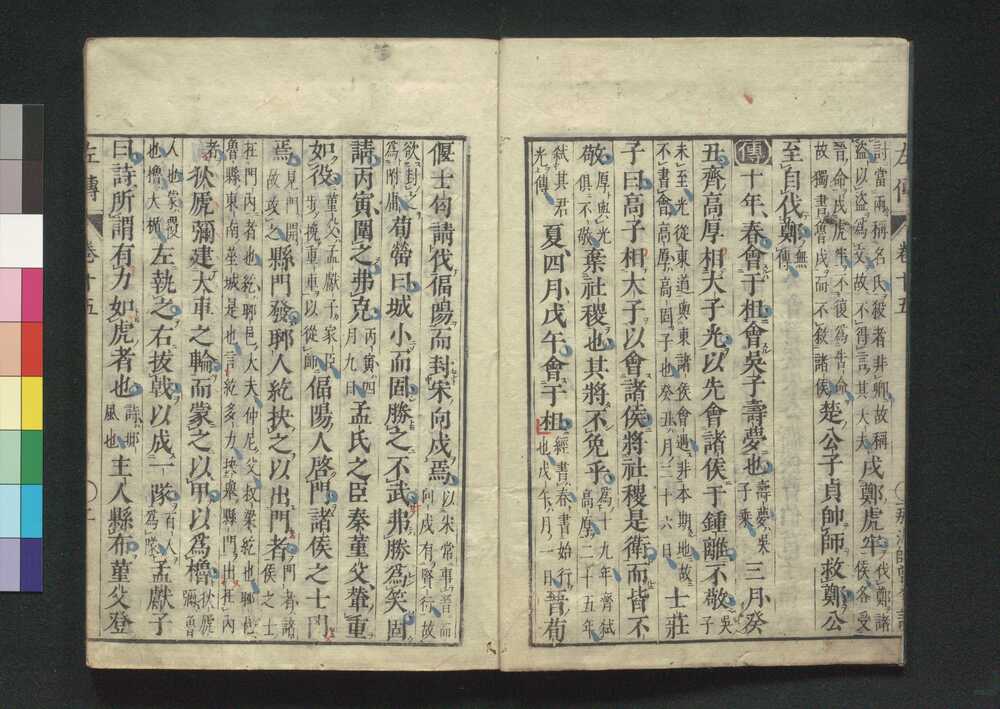 左傳 卷十五
討當兩稱名氏彼者非卿故稱
盜以盜為文故不得言其大夫
戍鄭虎牢
伐鄭諸
侯各受
晉命戍虎牢不復為告命
故獨書魯戍而不敘諸侯
楚公子貞帥師救鄭公
至自伐鄭
無傳
傳十年春會于柤會吳子壽夢也
壽夢吳
子乘
三月癸
丑齊高厚相大子光以先會諸侯于鍾離不敬
吳子
未至光從東道與東諸侯會遇非本期地故
不書會高厚高固子也癸丑月二十六日
士莊
子曰高子相大子以會諸侯將社稷是衛而皆不
敬
厚與光
俱不敬
棄社稷也其將不免乎
為十九年齊弒
高厚二十五年
弒其君
光傳
夏四月戊午會于柤
經書春書始行
也戊午月一日
晉荀
偃士匄請伐偪陽而封宋向戌焉
以宋常事晉而
向戌有賢行故
欲封之
為附庸
荀罃曰城小而固勝之不武弗勝為笑固
請丙寅圍之弗克
丙寅四
月九日
孟氏之臣秦堇父輦重
如役
堇父孟獻子家臣
步挽重車以從師
偪陽人啓門諸侯之士門
焉
見門開
故攻之
縣門發郰人紇抉之以出門者
門者諸
侯之士
在門內者也紇郰邑大夫仲尼父叔梁紇也郰邑
魯縣東南莝城是也言紇多力抉舉縣門出在內
者
狄虒彌建大車之輪而蒙之以甲以為櫓
狄虒
彌魯
人也蒙覆
也櫓大楯
左執之右拔戟以成一隊
百人
為隊
孟獻子
曰詩所謂有力如虎者也
詩邶
風也
主人縣布堇父登
左傳 卷十五